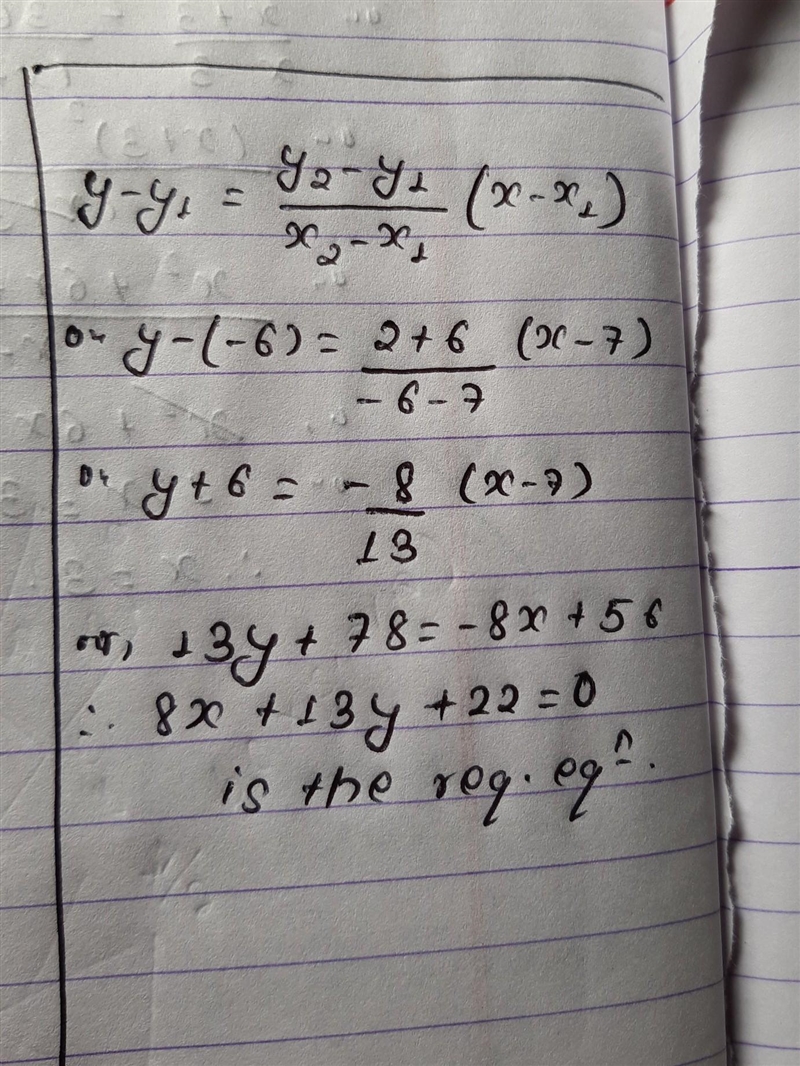 y-y₁ = y₂-y₁/x₂-x₁ (x-x₁)
or y-(-6) = 2+6/-6-7 (x-7)
or y+6 = -8/13 (x-7)
or, 13y+78=-8x+56
∴ 8x+13y+22=0
is the req. eqⁿ.